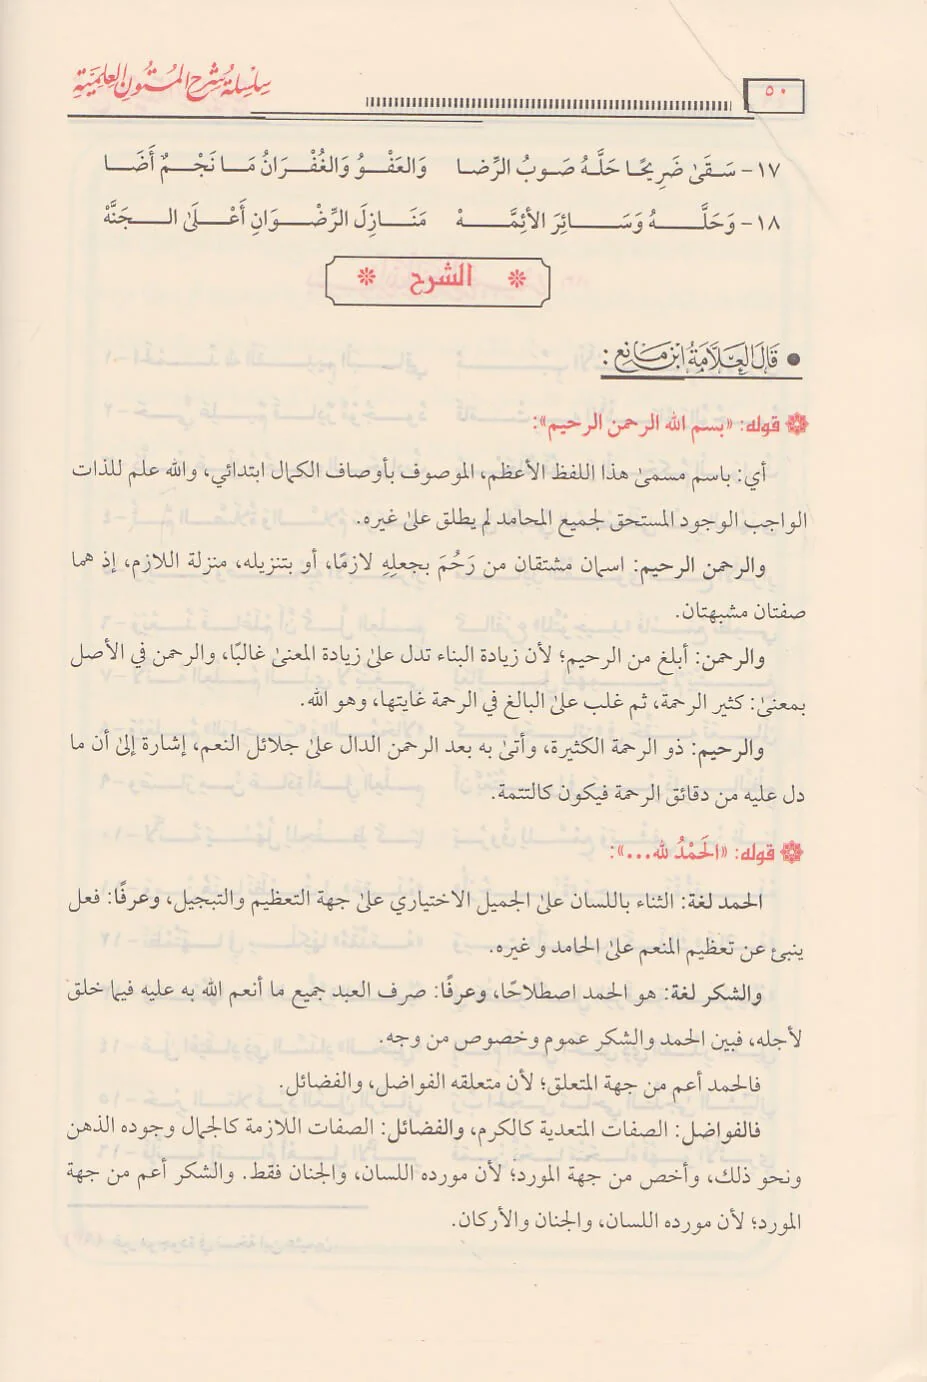 ٥٠
سلسلة شرح المتون العلمية
١٧- سَقَىٰ ضَرِيحًا حَلَّهُ صَوبُ الرِّضا وَالعَفْوُ وَالغُفْرَانُ مَا نَجْمٌ أَضَا
١٨- وَحَلَّهُ وَسَائِرَ الأئِمَّهْ مَنَازِلَ الرِّضْوَانِ أَعْلَىٰ الجَنَّهْ
الشرح
● قَالَ العَلَّامَةُ ابْنُ مَانِعٍ:
قوله: «بسم الله الرحمن الرحيم»:
أي: باسم مسمىٰ هذا اللفظ الأعظم، الموصوف بأوصاف الكمال ابتدائي، والله علم للذات
الواجب الوجود المستحق لجميع المحامد لم يطلق علىٰ غيره.
والرحمن الرحيم: اسمان مشتقان من رَحُمَ بجعلِهِ لازمًا، أو بتنزيله، منزلة اللازم، إذ هما
صفتان مشبهتان.
والرحمن: أبلغ من الرحيم؛ لأن زيادة البناء تدل علىٰ زيادة المعنىٰ غالبًا، والرحمن في الأصل
بمعنىٰ: كثير الرحمة، ثم غلب علىٰ البالغ في الرحمة غايتها، وهو الله.
والرحيم: ذو الرحمة الكثيرة، وأتىٰ به بعد الرحمن الدال علىٰ جلائل النعم، إشارة إلىٰ أن ما
دل عليه من دقائق الرحمة فيكون كالتتمة.
قوله: «الحَمْدُ لله...»:
الحمد لغة: الثناء باللسان علىٰ الجميل الاختياري علىٰ جهة التعظيم والتبجيل، وعرفًا: فعل
ينبئ عن تعظيم المنعم علىٰ الحامد و غيره.
والشكر لغة: هو الحمد اصطلاحًا، وعرفًا: صرف العبد جميع ما أنعم الله به عليه فيما خلق
لأجله، فبين الحمد والشكر عموم وخصوص من وجه.
فالحمد أعم من جهة المتعلق؛ لأن متعلقه الفواضل، والفضائل.
فالفواضل: الصفات المتعدية كالكرم، والفضائل: الصفات اللازمة كالجمال وجوده الذهن
ونحو ذلك، وأخص من جهة المورد؛ لأن مورده اللسان، والجنان فقط. والشكر أعم من جهة
المورد؛ لأن مورده اللسان، والجنان والأركان.